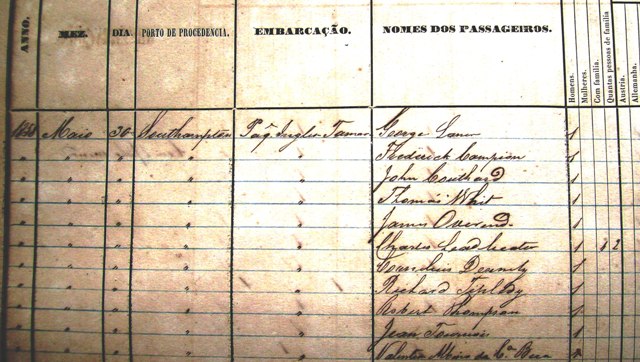 ANNO. MEZ. DIA PORTO DE PROCEDENCIA. EMBARCAÇÃO. NOMES DOS PASSAGEIROS. Homens. Mulheres. Com familia. Quantas pessoas de familia Austria. Allemanha.
1858 Maio 30 Southampton Paq. Inglez Tamar George 1
" " " " " Frederick Campion 1
" " " " " John Couthard 1
" " " " " Thomas Whit 1
" " " " " James Overend 1
" " " " " Charles Leadbeater 1 2
" " " " " Cornelius 1
" " " " " Richard 1
" " " " " Robert Thompson 1
" " " " " Jean Tournois 1
" " " " " Valentin da